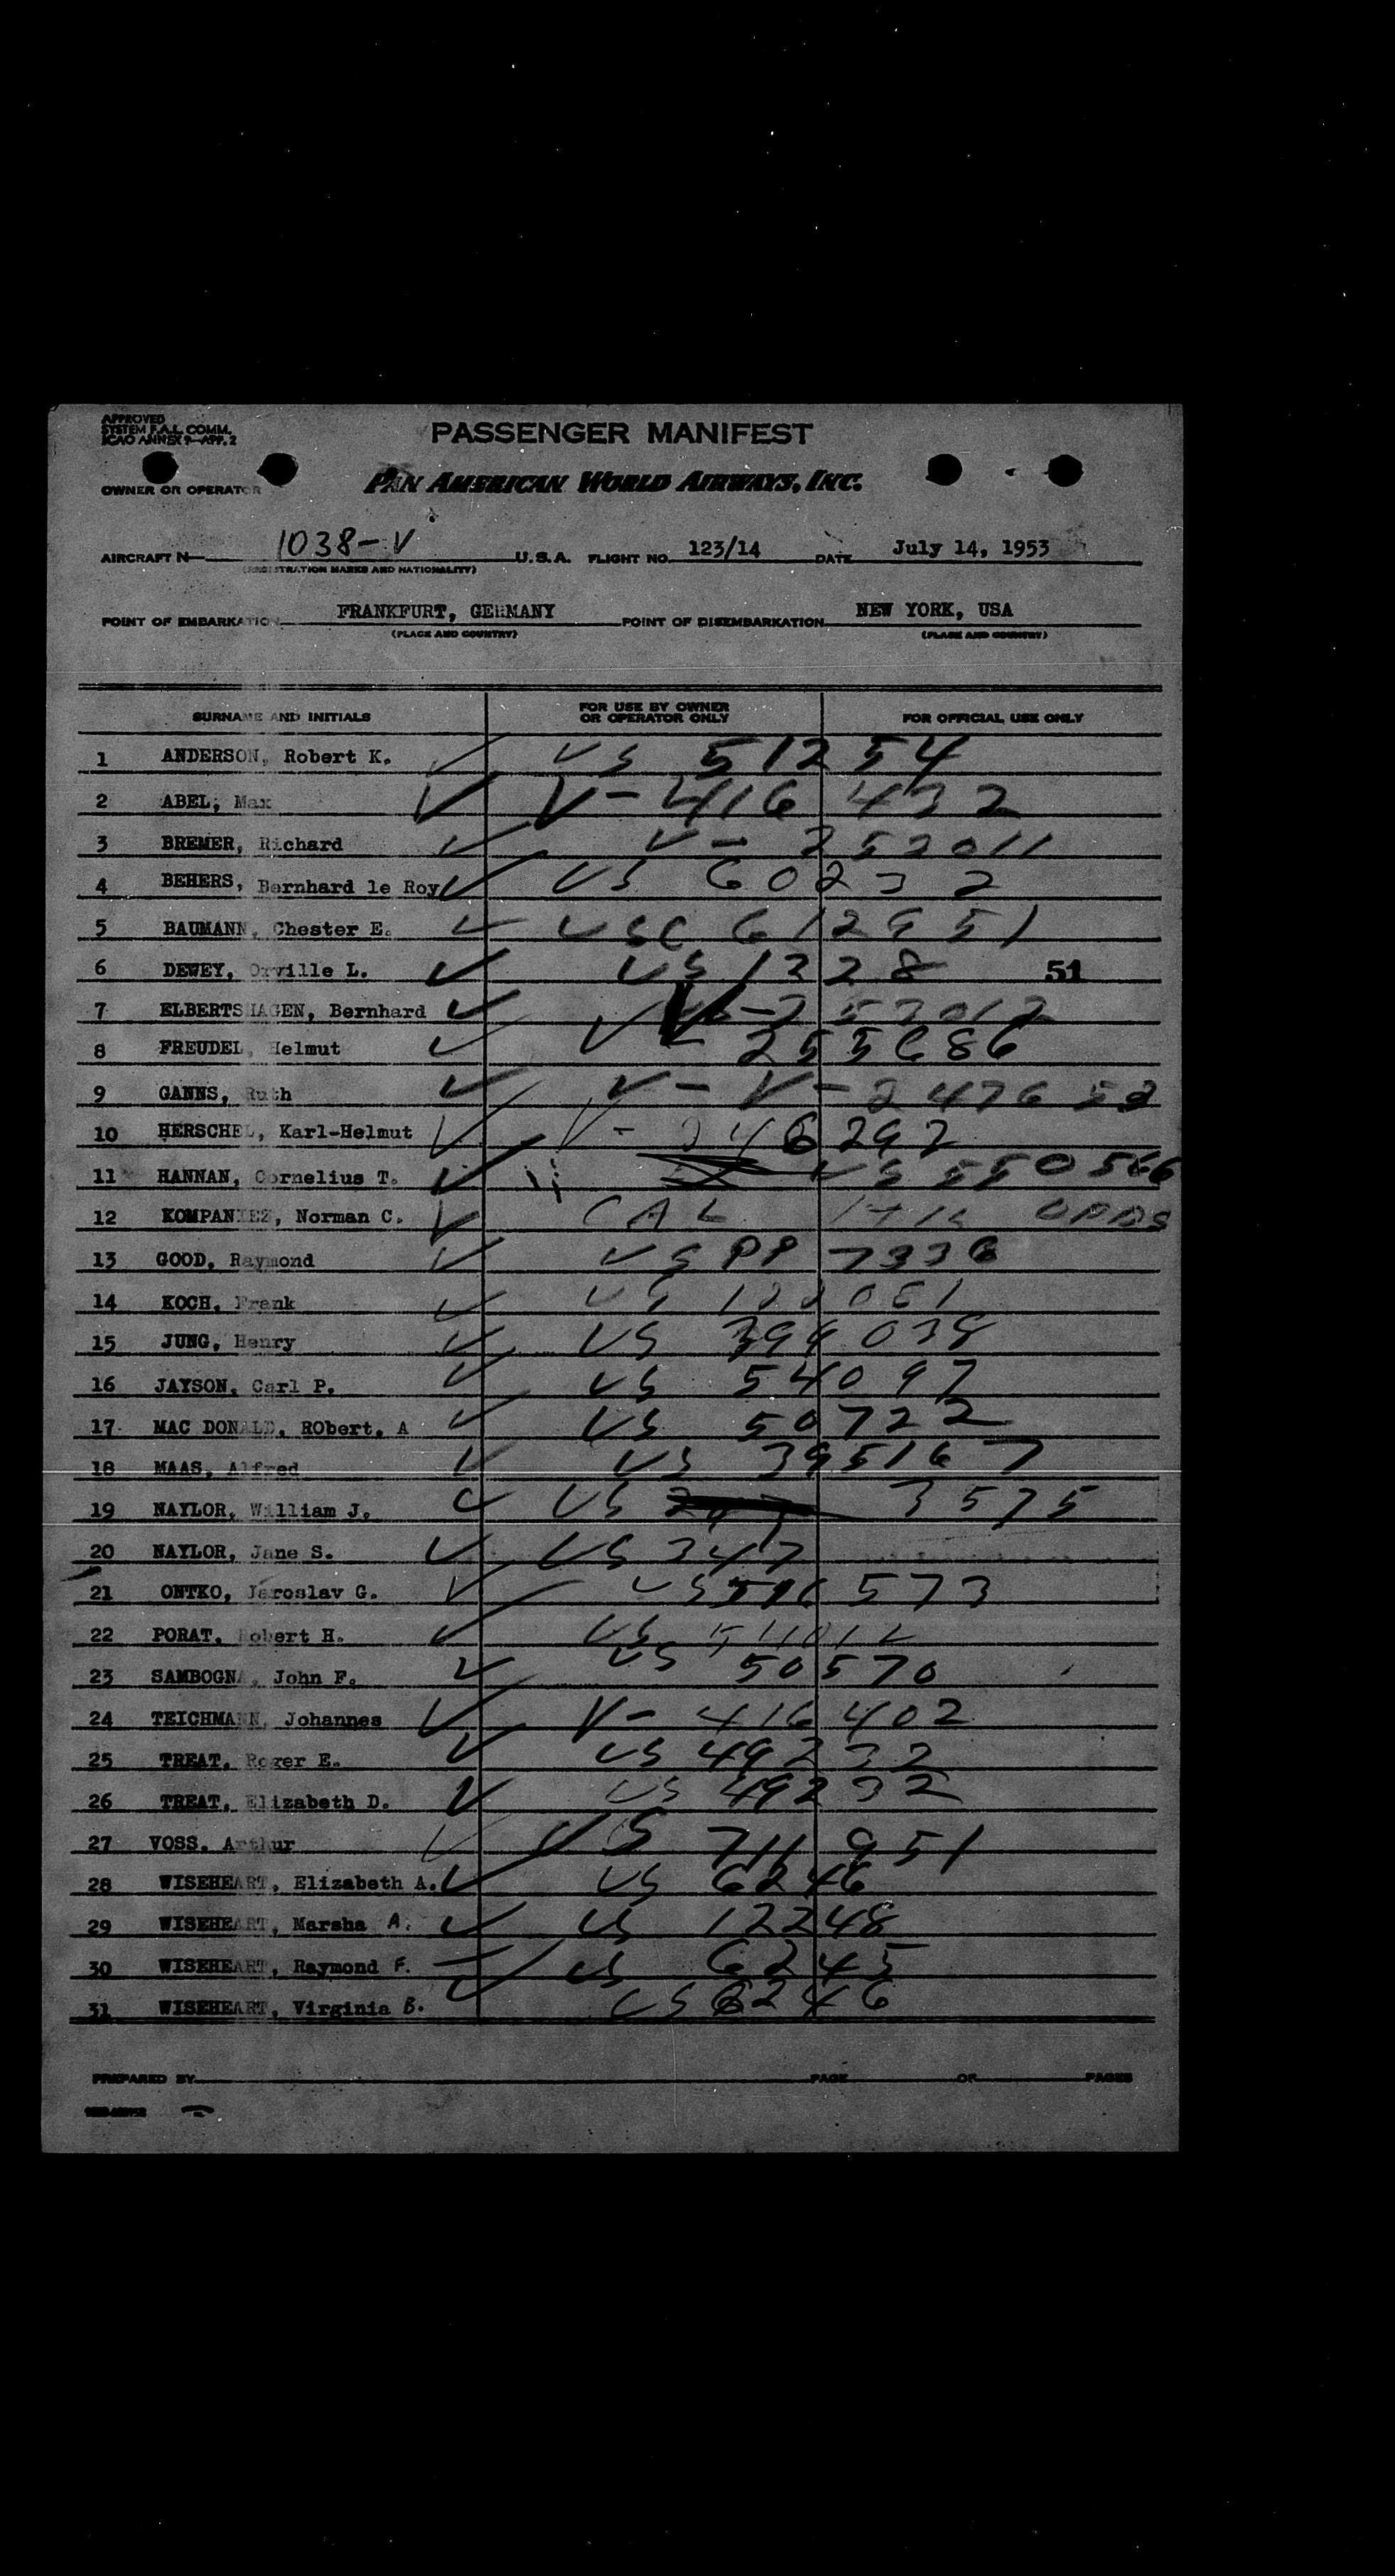 APPROVED
SYSTEM F.A.L. COMM.
ICAO ANNEX 9—APP. 2
PASSENGER MANIFEST
OWNER OR OPERATOR PAN AMERICAN WORLD AIRWAYS, INC.
AIRCRAFT N 1038-V U.S.A. FLIGHT NO. 123/14 DATE July 14, 1953
(REGISTRATION MARKS AND NATIONALITY)
POINT OF EMBARKATION FRANKFURT, GERMANY POINT OF DISEMBARKATION NEW YORK, USA
(PLACE AND COUNTRY) (PLACE AND COUNTRY)
SURNAME AND INITIALS FOR USE BY OWNER OR OPERATOR ONLY FOR OFFICIAL USE ONLY
1 ANDERSON, Robert K. US 51254
2 ABEL, Max V-416432
3 BREMER, Richard V-252011
4 BEHERS, Bernhard le Roy US 60232
5 BAUMANN, Chester E. USC 612951
6 DEWEY, Orville L. US 1328 51
7 ELBERTSHAGEN, Bernhard
8 FREUDEL, Helmut V-255686
9 GANNS, Ruth V-V-247652
10 HERSCHEL, Karl-Helmut V-246292
11 HANNAN, Cornelius T. US 550566
12 KOMPANIEZ, Norman C. CAL
13 GOOD, Raymond US PP 7336
14 KOCH, Frank US
15 JUNG, Henry US 394038
16 JAYSON, Carl P. US 54097
17 MAC DONALD, RObert, A US 50722
18 MAAS, Alfred US 395167
19 NAYLOR, William J. US 3575
20 NAYLOR, Jane S. US 347
21 ONTKO, Jaroslav G. US 516573
22 PORAT, Robert H. US
23 SAMBOGNA, John F. US 50570
24 TEICHMANN, Johannes V-416402
25 TREAT, Roger E. US 49232
26 TREAT, Elizabeth D. US 49232
27 VOSS, Arthur US 711951
28 WISEHEART, Elizabeth A. US 6246
29 WISEHEART, Marsha A. US 12248
30 WISEHEART, Raymond F. US 6245
31 WISEHEART, Virginia B. US 6246
PREPARED BY PAGE OF PAGES